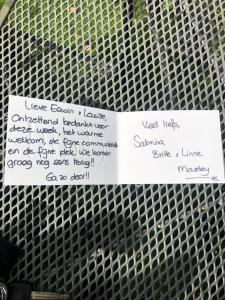 Lieve Erwin + Lauze,
Ontzettend bedankt voor
deze week, het warme
welkom, de fijne communicatie
en de fijne plek. We komen
graag nog eens terug!!
Ga zo door!!
Veel liefs,
Sabrina
Britte + Linne